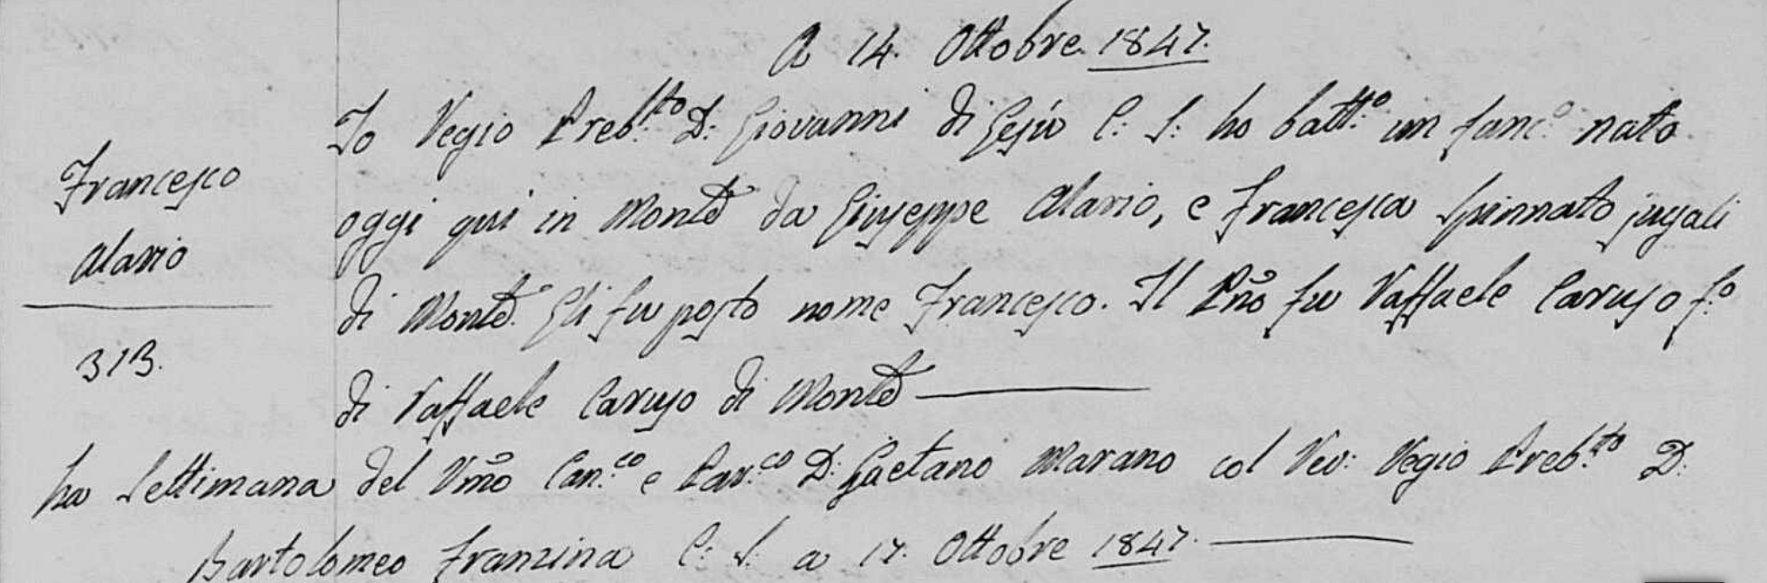 A 14. Ottobre 1847.
Io Regio Preb.to D: Giovanni di Gesù C: S: ho batt.o un fanc.o nato
Francesco
oggi qui in Monle da Giuseppe Alario, e Francesca Spinnato jugali
Alario
di Monle. Gli fu posto nome Francesco. Il Pñô fu Raffaele Caruso f.o
313.
di Raffaele Caruso di Monle
La Settimana del Rmô Can.co e Par.co D: Gaetano Marano col Rev: Regio Preb.to D:
Bartolomeo Franzina C: S: a 17. Ottobre 1847.